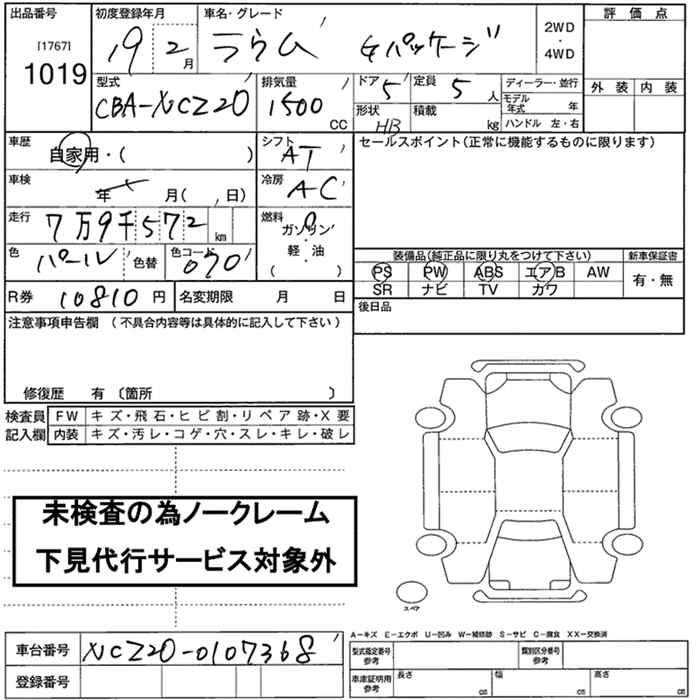 出品番号 初度登録年月 車名・グレード 評価点
[1767]
1019
19 2月 ラウム Gパッケージ 2WD・4WD
外装 内装
型式 排気量 ドア 定員 ディーラー・並行
CBA-NCZ20 1500CC 5 5人 モデル年式 年
形状 HB 積載 kg ハンドル 左・右
車歴 自家用・( ) シフト AT セールスポイント(正常に機能するものに限ります)
車検 年 月( , 日) 冷房 AC
走行 7万9千572km 燃料 ガソリン・軽・油( )
色 パール 色替 色コード 070
装備品(純品に限り丸をつけて下さい) 新車保証書
PS PW ABS エアB AW 有・無
SR ナビ TV カワ
R券 10810円 名変期限 月 日 後日品
注意事項申告欄 (不具合内容等は具体的に記入して下さい)
修復歴 有 〔箇所 〕
検査員記入欄 FW キズ・飛石・ヒビ割・リペア跡・X要
内装 キズ・汚レ・コゲ・穴・スレ・キレ・破レ
未検査の為ノークレーム
下見代行サービス対象外
スペア
A-キズ E-エクボ U-凹み W-補修跡 S-サビ C-腐食 XX-交換済
車台番号 NCZ20-0107368 型式指定番号参考 類別区分番号参考
登録番号 車庫証明用参考 長さ cm 幅 cm 高さ cm